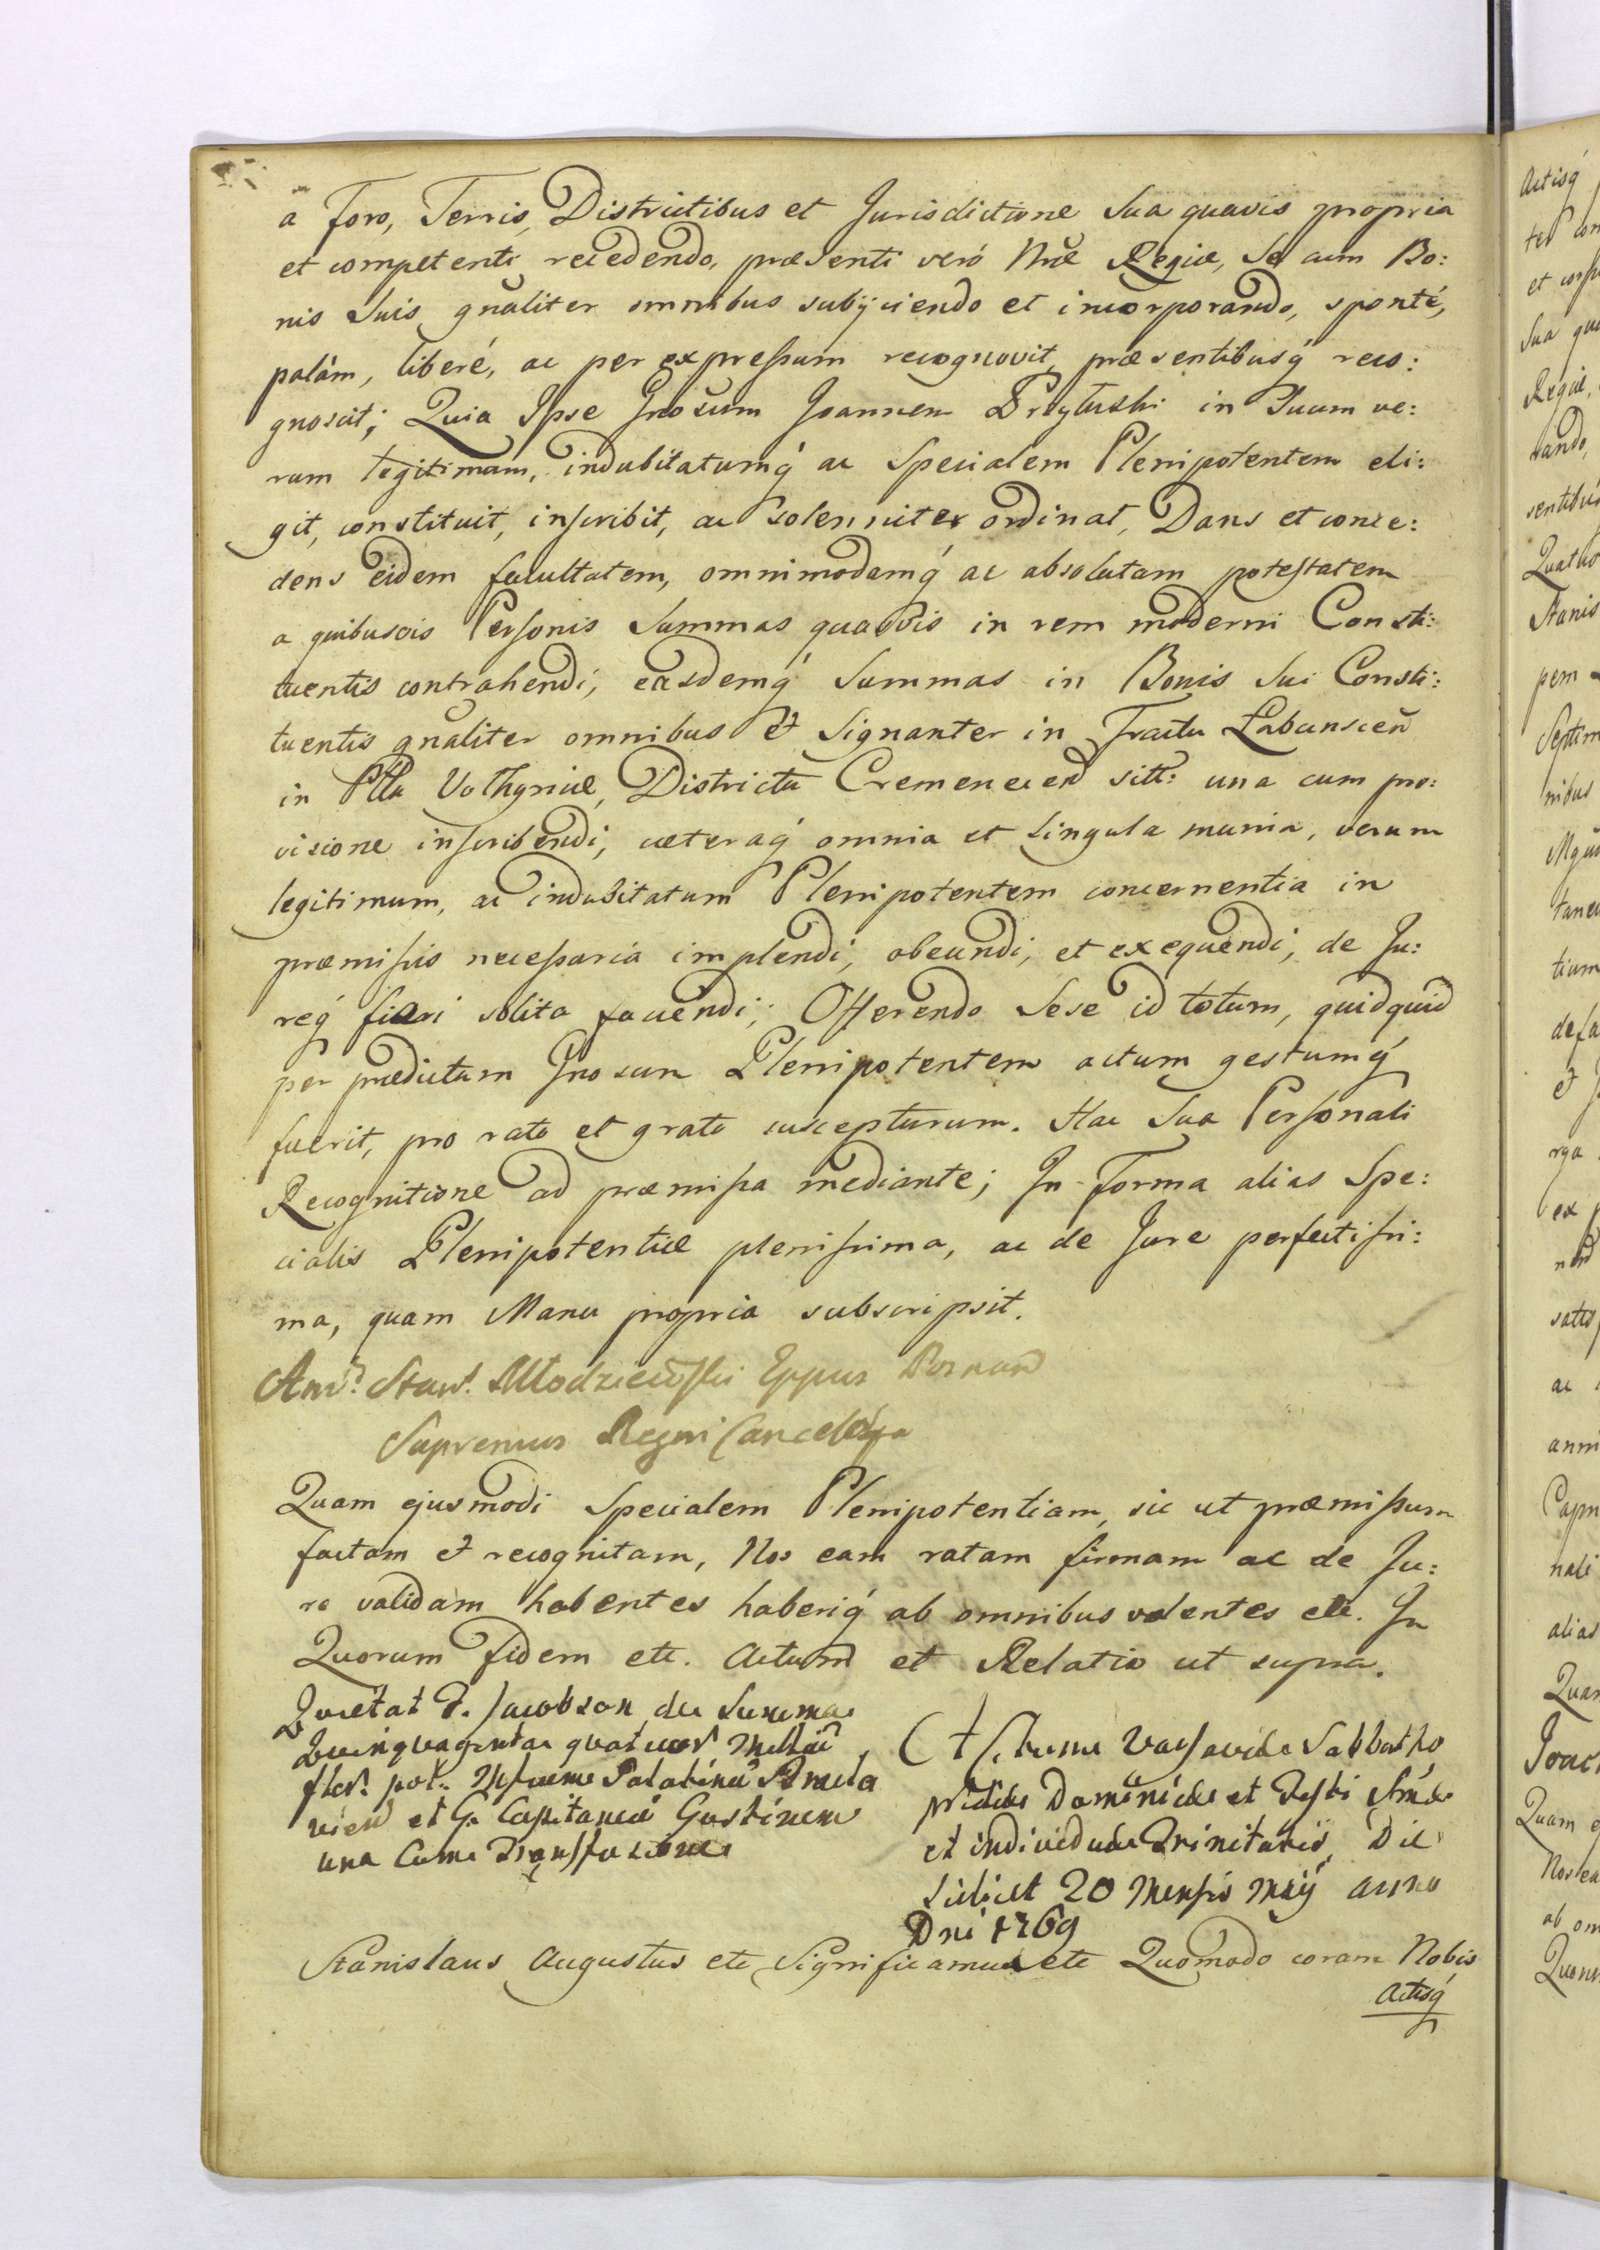 a Foro, Terris, Districtibus et Jurisdictione Sua quavis propria
et competenti recedendo, præsenti veró Nræ Regiæ, Se cum Bo:
nis Suis gnaliter omnibus subijciendo et incorporando, sponté,
palám, liberé, ac per expressum recognovit, præsentibusq́ reco:
gnoscit; Quia Ipse Gnosum Joannem Przyłuski in Suum ve:
rum legitimum, indubitatumq́ ac Specialem Plenipotentem eli:
git, constituit, inscribit, ac solenniter ordinat, Dans et conce:
dens eidem facultatem, omnimodamq́ ac absolutam potestatem
a quibusvis Personis Summas quasvis in rem moderni Consti:
tuentis contrahendi, easdemq́ Summas in Bonis Sui Consti:
tuentis gnaliter omnibus et Signanter in Tractu Łabunscen̄
in Pttu Volhyniæ, Districtu Cremenecen̄ sitt: una cum pro:
visione inscribendi, cæteraq́ omnia et Singula munia, verum
legitimum, ac indubitatum Plenipotentem concernentia in
præmissis necessaria implendi, obeundi, et exequendi, de Ju:
req́ fieri solita faciendi; Offerendo Sese id totum, quidquid
per prædictum Gnosum Plenipotentem actum gestumq́
fuerit, pro rato et grato suscepturum. Hac Sua Personali
Recognitione ad præmissa mediante; In Forma alias Spe:
cialis Plenipotentiæ plenissima, ac de Jure perfectissi:
ma, quam Manu propria subscripsit.
And: Stan: Młodzieiowski Eppus Posnan
Supremus Regni Cancell
Quam ejusmodi Specialem Plenipotentiam, sic ut præmissum
factam et recognitam, Nos eam ratam firmam ac de Ju:
re validam habentes haberiq́ ab omnibus volentes etc. In
Quorum Fidem etc. Actum et Relatio ut supra.
Quietat G. Jacobson de Summa
Quinquaginta quatuor Mille
flor: pol: Palatinum
et G. Capitaneum Gostinen
una cum Transfusione
Actum Varsaviæ Sabbatho
pridie Dominicæ et Festi
et individuæ Trinitatis, Die
scilicet 20 Mensis Maij anno
Dni 1769
Stanislaus Augustus etc Significamus etc Quomodo coram Nobis
Actisq́